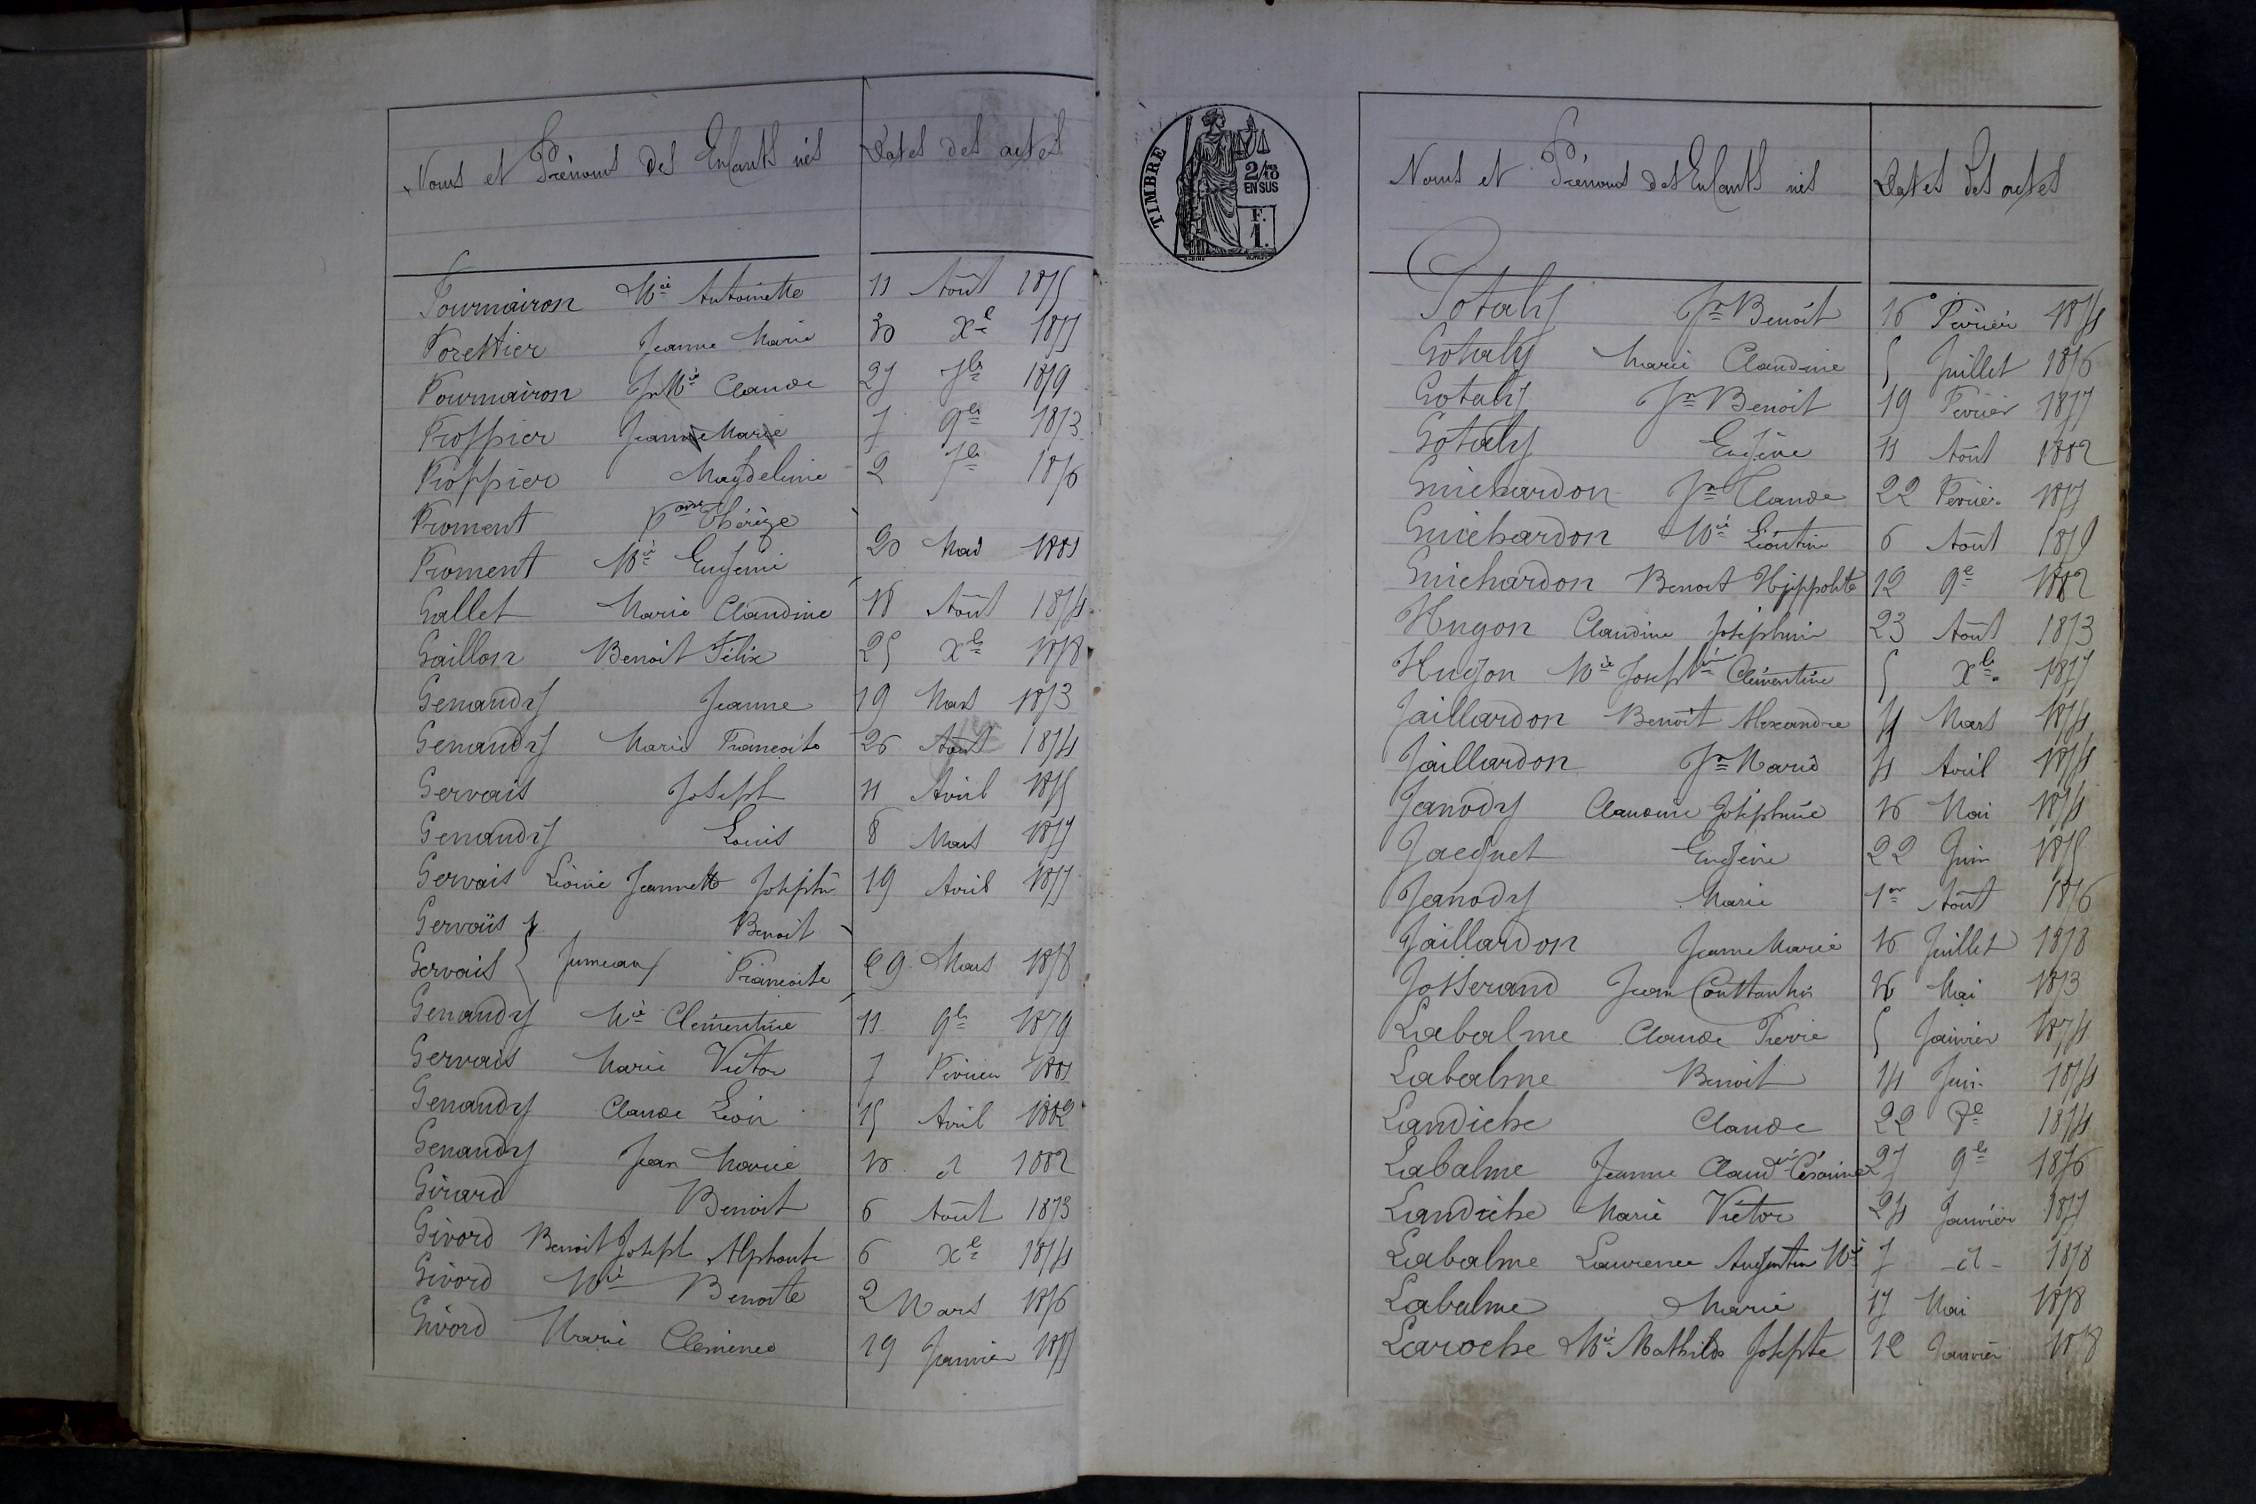 Noms et Prénoms des Enfants nés Dates des actes
Fournairon Mie Antoinette 11 Août 1875
Forettier Jeanne Marie 30 Xe 1877
Fournairon Jn Mie Claude 27 7bre 1879
Froppier Jeanne Marie 7 9bre 1873
Froppier Magdeleine 2 7bre 1876
Froment Thérèze
Froment Mie Eugénie 20 Mai 1881
Gallet Marie Claudine 18 Août 1874
Gaillon Benoit Félix 25 Xbre 1878
Genaudy Jeanne 19 Mars 1873
Genaudy Marie Francoise 26 Août 1874
Gervais Joseph 11 Avril 1875
Genaudy Louis 8 Mars 1877
Gervais Léonie Jeannette Joséphine 19 Avril 1877
Gervais Benoit
Gervais Jumeaux Francoise 29 Mars 1878
Genaudy Mie Clémentine 11 9bre 1879
Gervais Marie Victor 7 Février 1881
Genaudy Claude Léon 15 Avril 1882
Genaudy Jean Marie 16 d 1882
Girard Benoit 6 Août 1873
Givord Benoit Joseph Alphonse 6 Xe 1874
Givord Mie Benoite 2 Mars 1876
Givord Marie 19 Janvier 1877
TIMBRE
2/10
EN SUS
F.
1.
Noms et Prénoms des Enfants nés Dates des actes
Gotaly Jn Benoit 16 Février 1874
Gotaly Marie Claudine 5 Juillet 1876
Gotaly Jn Benoit 19 Février 1877
Gotaly Eugène 11 Août 1882
Guichardon Jn Claude 22 Février 1877
Guichardon Mie Léontine 6 Août 1879
Guichardon Benoit Hyppolite 12 9e 1882
Hugon Claudine Joséphine 23 Août 1873
Hugon Mie Joséphine Clémentine 5 Xbre 1877
Jaillardon Benoit Alexandre 4 Mars 1874
Jaillardon Jn Marie 4 Avril 1874
Janody Claudine Joséphine 16 Mai 1874
Jacquet Eugénie 22 Juin 1875
Janody Marie 1er Août 1876
Jaillardon Jeanne Marie 16 Juillet 1878
Josserand Jean Mai 1873
Labalme Claude Pierre 5 Janvier 1874
Labalme Benoit 14 Juin 1874
Landiche Claude 22 1874
Labalme Jeanne Claudine Césarine 27 9bre 1876
Landiche Marie Victor 24 Janvier 1877
Labalme Laurence Augustine Mie 7 -d- 1878
Labalme Marie 17 Mai 1878
Laroche Mie Mathilde Josepte 12 Janvier 1878